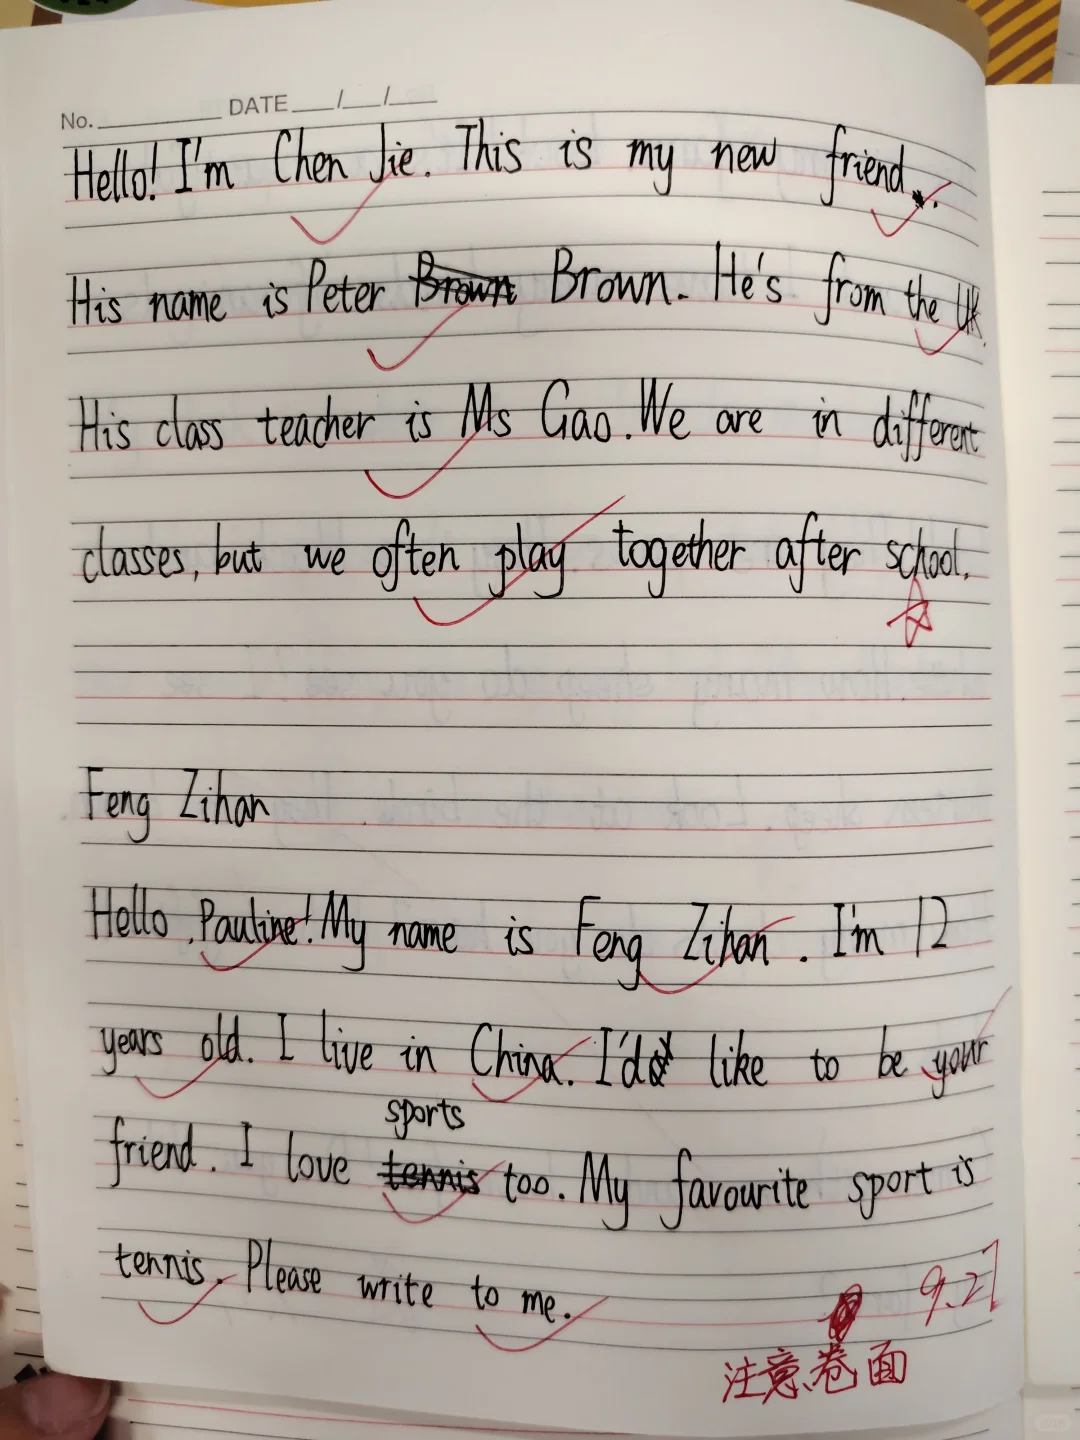 No. DATE / /
Hello! I'm Chen Jie. This is my new friend.
His name is Peter Brown Brown. He's from the UK.
His class teacher is Ms Gao. We are in different
classes, but we often play together after school.
Feng Zihan
Hello, Pauline! My name is Feng Zihan. I'm 12
years old. I live in China. I'd like to be your
sports
friend. I love tennis too. My favourite sport is
tennis. Please write to me.
9.27
注意卷面